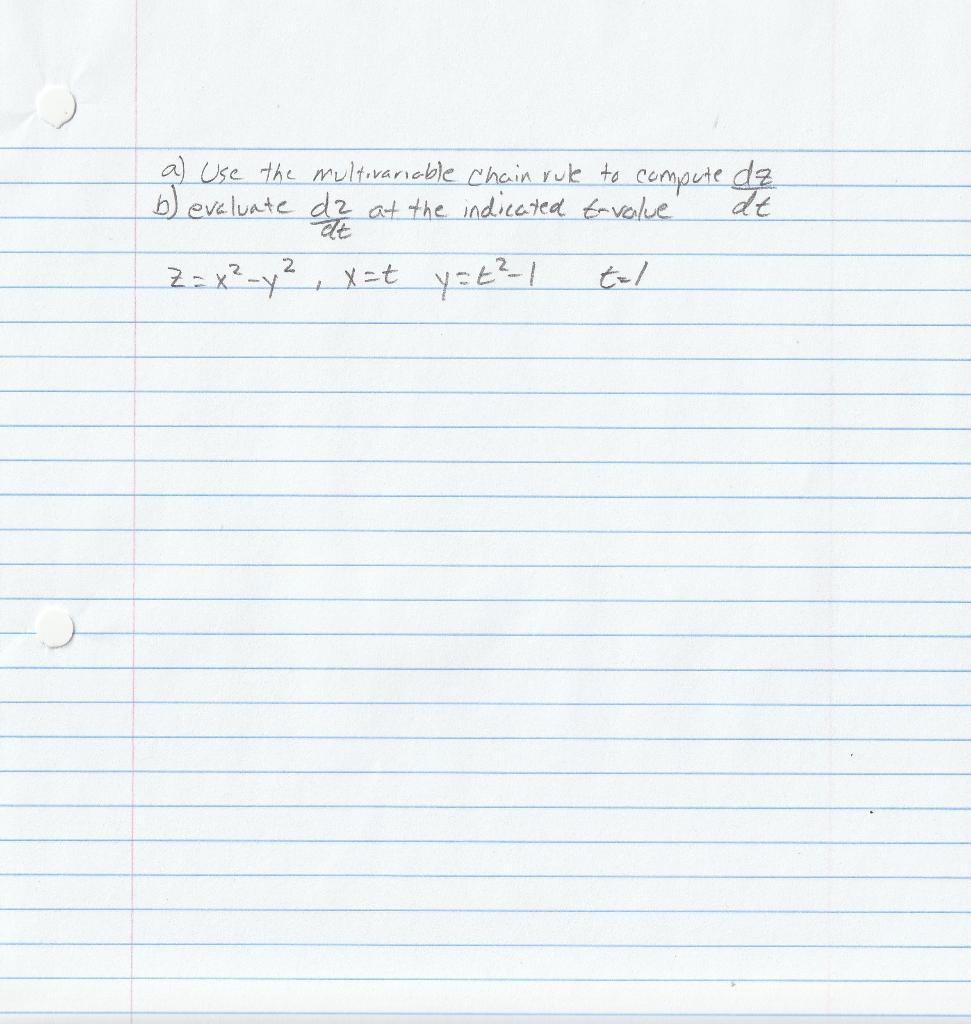 a) Use the multivariable chain rule to compute dz/dt
b) evaluate dz/dt at the indicated t-value
z = x² - y² , x = t y = t² - 1 t = 1